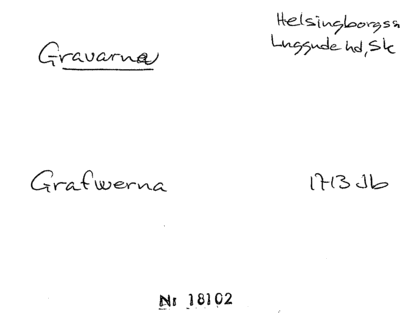 Helsingborgss
Luggude hd, Sk
Gravarna
Grafwerna
1713 Jb
Nr 18102